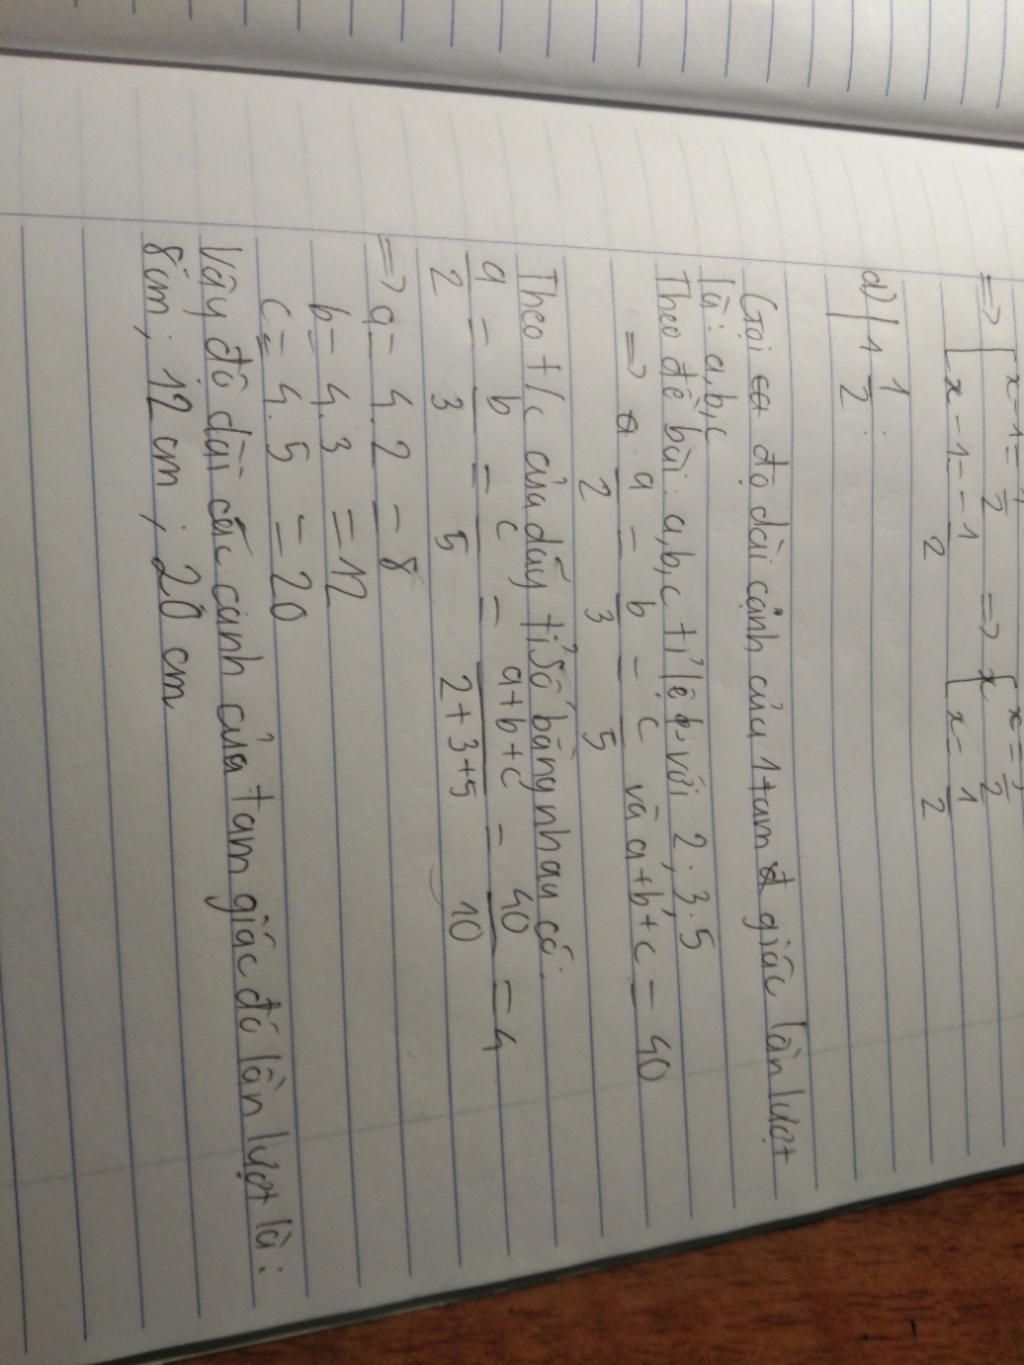 => [x-1= 1/2 => [x= 3/2
[x-1=-1/2 [x= 1/2
d) |1 1/2 :
Gọi độ dài cạnh của 1 tam giác lần lượt
là: a,b,c
Theo đề bài: a,b,c tỉ lệ với 2,3,5
=> a/2 = b/3 = c/5 và a+b+c = 40
Theo t/c của dãy tỉ số bằng nhau có:
a/2 = b/3 = c/5 = a+b+c/2+3+5 = 40/10 = 4
=> a= 4.2 = 8
b= 4.3 =12
c= 4.5 =20
Vậy độ dài các cạnh của tam giác đó lần lượt là:
8cm; 12 cm; 20 cm